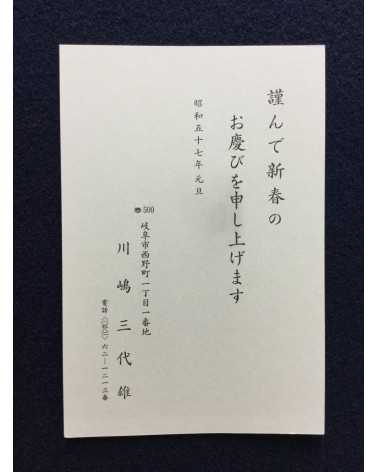 謹んで新春の
お慶びを申し上げます
昭和五十七年元旦
〠500
岐阜市西野町一丁目一番地
川嶋三代雄
電話 六二―一二一三番